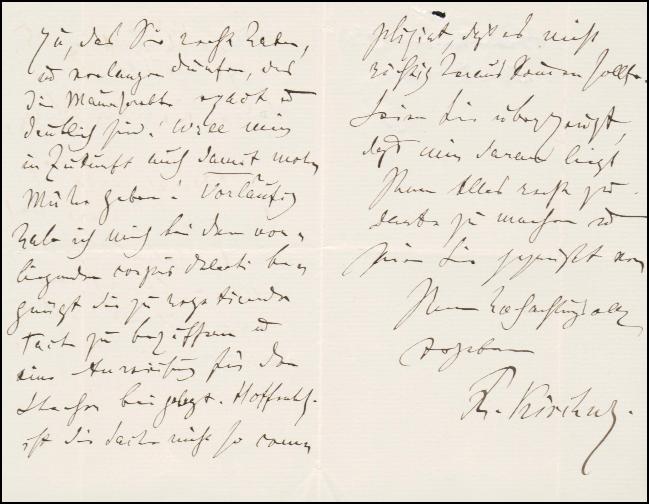 zu, daß Sie recht haben,
u verlangen dürfen, daß
die Manuscripte exact u
deutlich sind! Will mir
in Zukunft auch damit mehr
Mühe geben! Vorläufig
habe ich mich bei dem vor-
liegenden corpus delicti be-
gnügt die zu repetirende
Takte zu beziffern u
eine Anweisung für den
Stecher beigelegt. Hoffentl.
ist die Sache nicht so com-
plizirt, daß es nicht
richtig heraus kommen sollte.
Seien Sie überzeugt,
daß mir daran liegt
Ihnen Alles recht zu
danke zu machen u
seien Sie gegrüßt von
Ihrem hochachtungsvoll
ergebenen
Th. Kirchner.